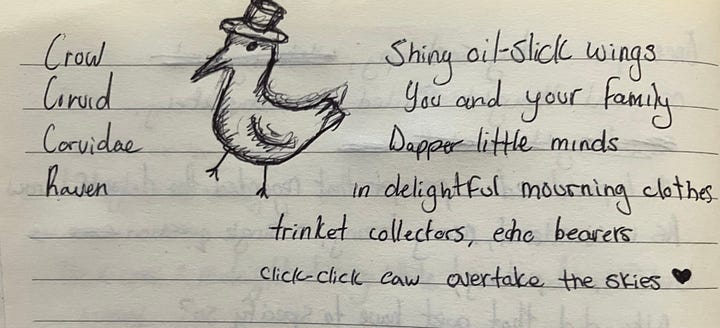 Crow
Corvid
Corvidae
Raven
Shing oil-slick wings
You and your family
Dapper little minds
in delightful mourning clothes
trinket collectors, echo bearers
click-click caw overtake the skies ♥